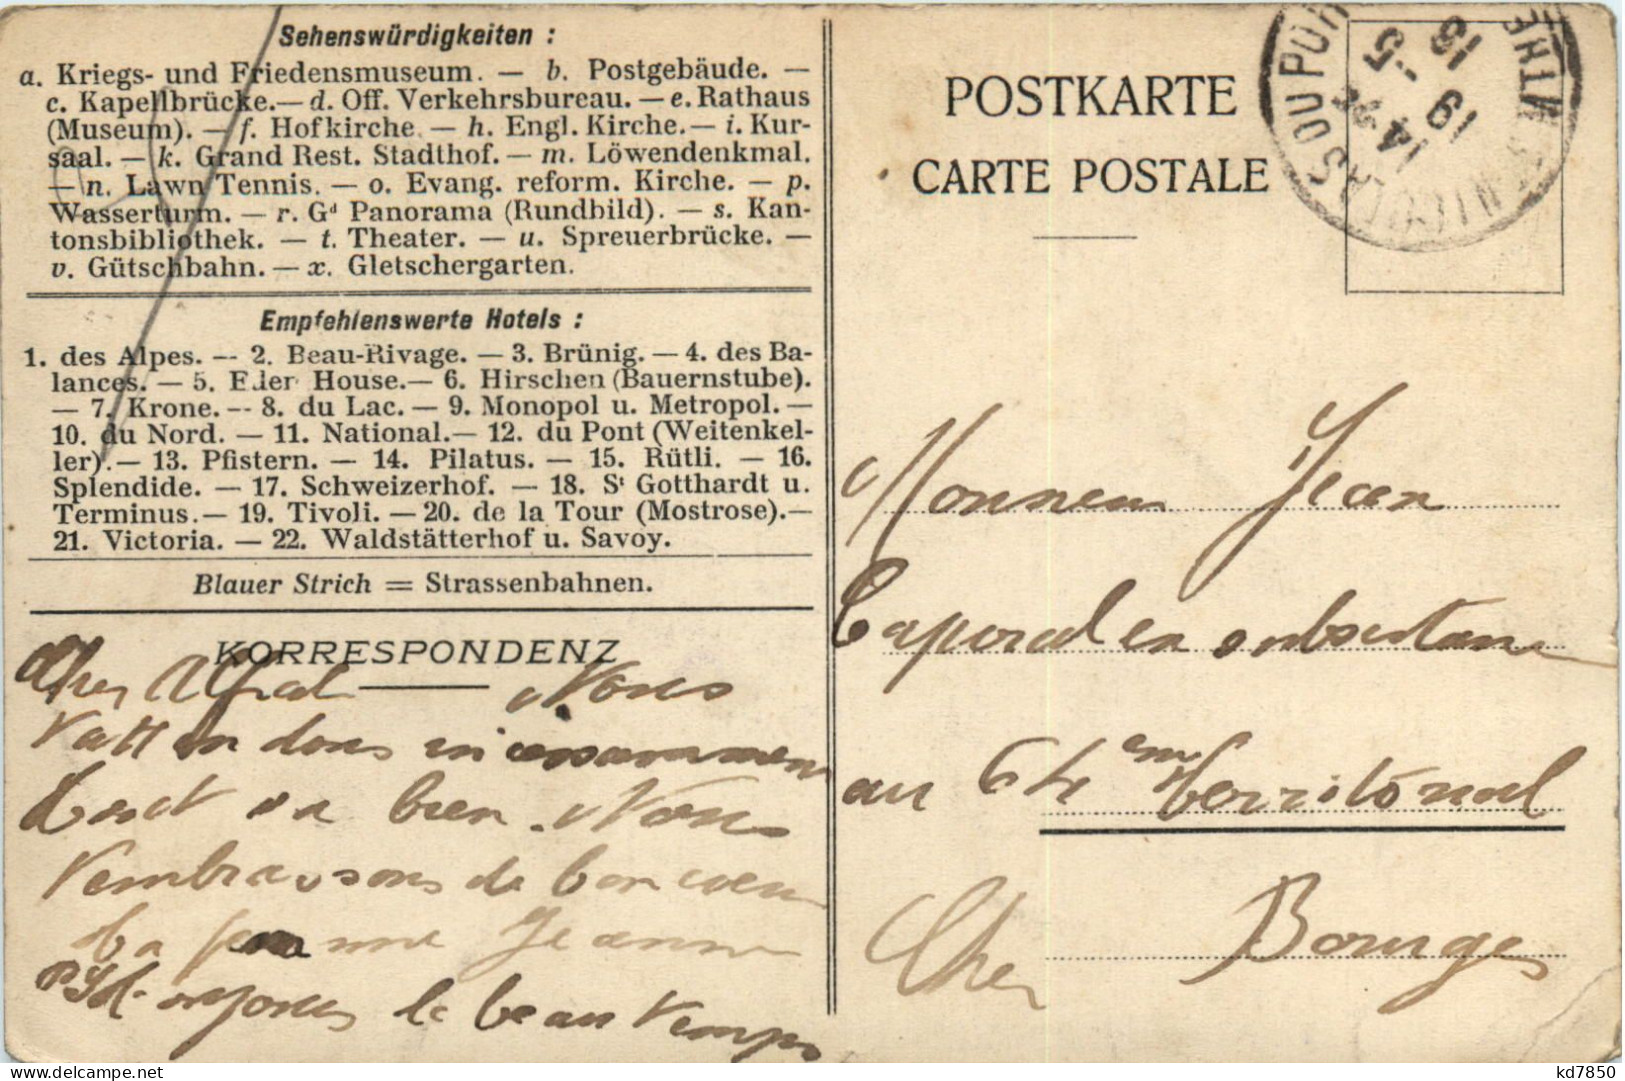 Sehenswürdigkeiten :
a. Kriegs- und Friedensmuseum. — b. Postgebäude. —
c. Kapellbrücke.— d. Off. Verkehrsbureau. — e. Rathaus
(Museum). — f. Hofkirche. — h. Engl. Kirche.— i. Kur-
saal. — k. Grand Rest. Stadthof. — m. Löwendenkmal.
— n. Lawn Tennis. — o. Evang. reform. Kirche. — p.
Wasserturm. — r. Gd Panorama (Rundbild). — s. Kan-
tonsbibliothek. — t. Theater. — u. Spreuerbrücke. —
v. Gütschbahn. — x. Gletschergarten.
Empfehlenswerte Hotels :
1. des Alpes. -- 2. Beau-Rivage. — 3. Brünig. — 4. des Ba-
lances. — 5. Eder House.— 6. Hirschen (Bauernstube).
— 7. Krone. -- 8. du Lac. — 9. Monopol u. Metropol. —
10. du Nord. — 11. National.— 12. du Pont (Weitenkel-
ler).— 13. Pfistern. — 14. Pilatus. — 15. Rütli. — 16.
Splendide. — 17. Schweizerhof. — 18. St Gotthardt u.
Terminus.— 19. Tivoli. — 20. de la Tour (Mostrose).—
21. Victoria. — 22. Waldstätterhof u. Savoy.
Blauer Strich = Strassenbahnen.
KORRESPONDENZ
Cher Nous
incessammen
bien. Nous
t'embrassons de bon coeu
ta femme Jeanne
le beau temps
POSTKARTE
CARTE POSTALE
19 -5
14 18
Monsieur Jean
Caporal en subsistance
au 64 em territorial
Cher Bourges
kd7850